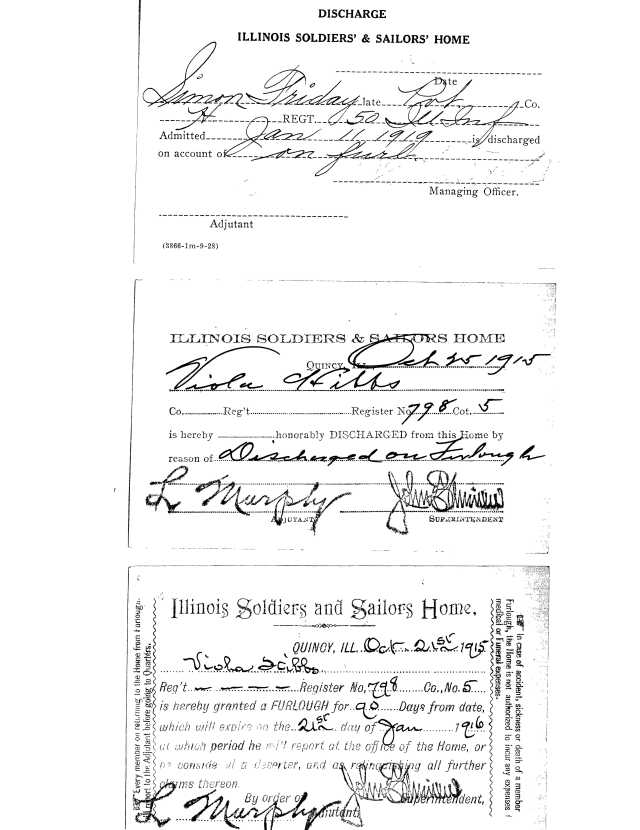 DISCHARGE
ILLINOIS SOLDIERS' & SAILORS' HOME
Date
Simon Friday late Pvt Co.
H REGT. 150 Ill Inf
Admitted Jan 11 1919 is discharged
on account of on furl.
Managing Officer.
Adjutant
(3866-1m-9-28)
ILLINOIS SOLDIERS & SAILORS HOME
QUINCY, Oct 25 1915
Viola Hibbs
Co. Reg't Register No 798 Cot. 5
is hereby honorably DISCHARGED from this Home by
reason of Discharged on Furlough
L Murphy John E
ADJUTANT SUPERINTENDENT
Illinois Soldiers and Sailors Home.
QUINCY, ILL. Oct. 21st 1915
Viola Hibbs
Reg't — — — — Register No, 798 Co., No. 5
is hereby granted a FURLOUGH for 90 Days from date,
which will expire on the 21st day of Jan 1916
at which period he will report at the office of the Home, or
be consider d a deserter, and as relinquishing all further
claims thereon
By order of John E Superintendent,
L Murphy Adjutant
Every member on returning to the Home from Furlough,
report to the Adjutant before going to Quarters.
In case of accident, sickness or death of a member
Furlough, the Home is not authorized to incur any expenses
medical or Funeral expenses.